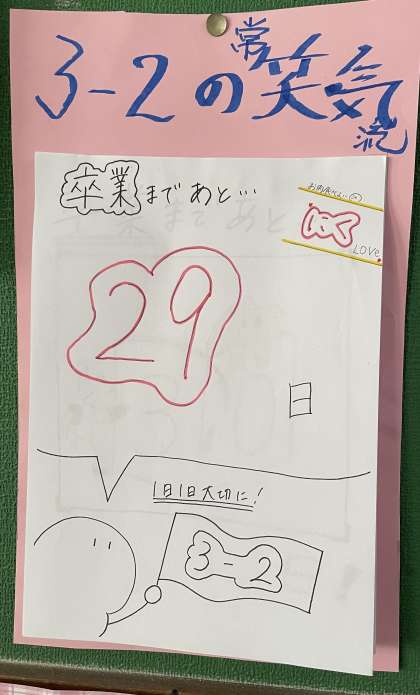 3-2の常笑気流
卒業まであと…
にく
LOVE
29
日
1日1日大切に!
3-2